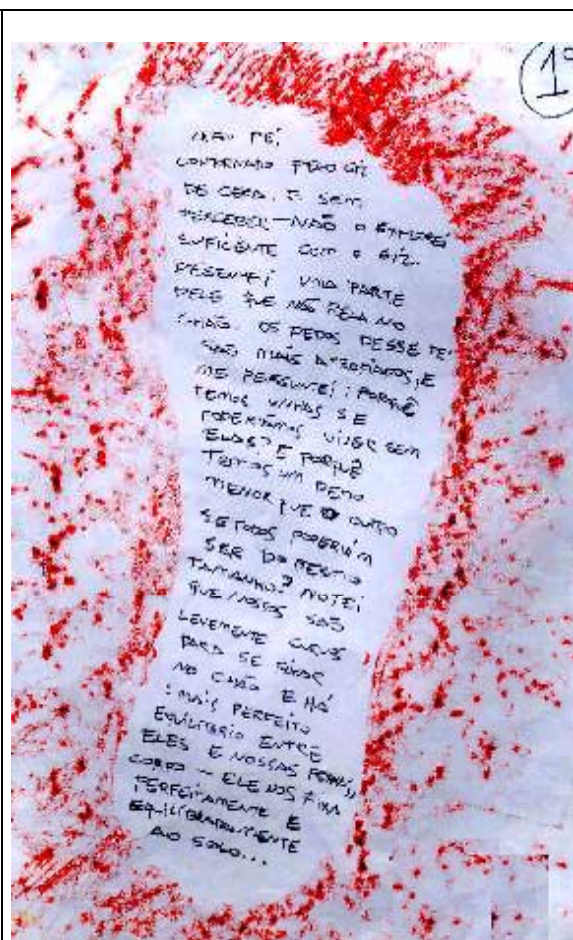 1º
PÉ,
CONTORNADO PELO GIZ
DE CERA. E SEM
PERCEBER — NÃO O
SUFICIENTE COM O GIZ.
DESENHEI UMA PARTE
DELE QUE NÃO PEGA NO
CHÃO. OS DEDOS DESSE PÉ
SÃO MAIS E
ME PERGUNTEI: PORQUÊ
TEMOS UNHAS SE
PODERÍAMOS VIVER SEM
ELAS? E PORQUÊ
TEMOS UM DEDO
MENOR QUE O OUTRO
SE TODOS PODERIAM
SER DO MESMO
TAMANHO? NOTEI
QUE NOSSOS SÃO
LEVEMENTE CURVOS
PARA SE FIXAR
NO CHÃO E HÁ
MAIS PERFEITO
EQUILÍBRIO ENTRE
ELES E NOSSAS
CORPO — ELE NOS FIXA
PERFEITAMENTE E
EQUILIBRADAMENTE
AO SOLO...